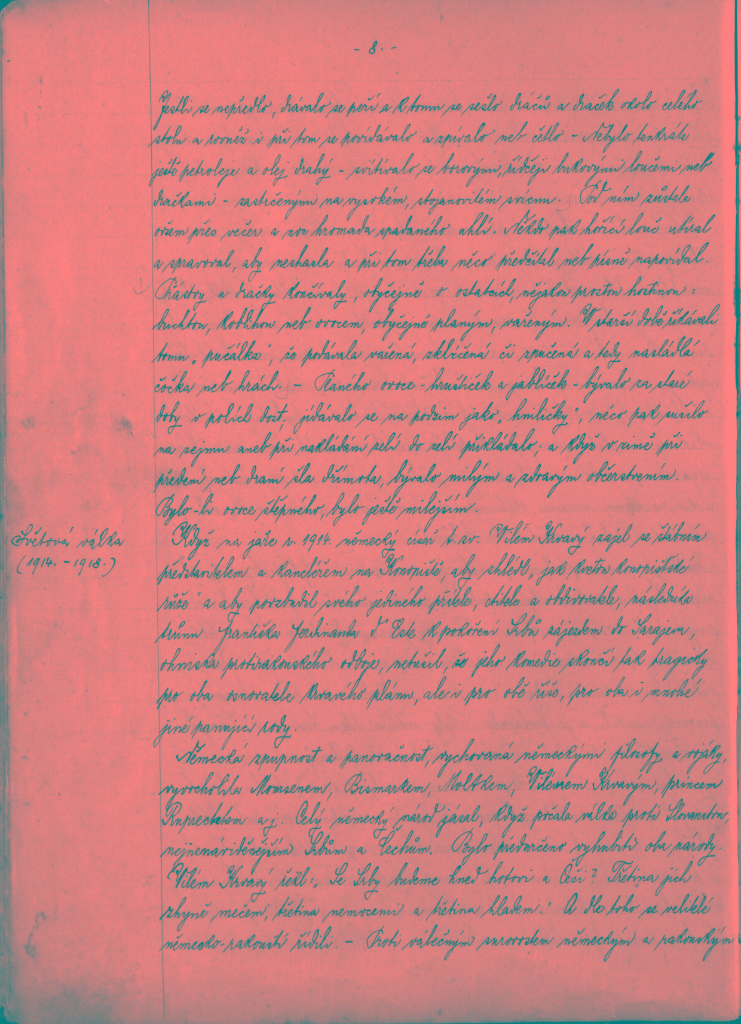 - 8. -
Jestli se nepředlo, drávalo se peří a k tomu se sešlo dráčů a draček okolo celého
stolu a rovněž i při tom se povídávalo a zpívalo neb čtlo - Nebylo tenkráte
ještě petroleje a olej drahý - svítívalo se borovými, řidčeji bukovými loučemi neb
dračkami - zastrčenými na vysokém, stojanovitém svícnu. Pod ním zůstala
ovšem přes večer a noc hromada spadaného uhlí. Někdo pak hořící louč utíral
a spravoval, aby neshasla a při tom třeba něco předčítal neb písně napovídal.
Přástvy a dračky končívaly, obyčejně o ostatcích, nějakou prostou hostinou:
buchtou, koblihou neb ovocem, obyčejně planým, vařeným. V starší době říkávali
tomu „pučálka", že podávala vařená, zklíčená či zpučená a tedy nasládlá
čočka neb hrách. - Raného ovoce - hrušticek a jabliček - bývalo za staré
doby v polích dost. jídávalo se na podzim jako „hniličky", něco pak sušilo
na sejmu aneb při nakládání zelí do zelí přikládalo; a když v zimě při
předení neb draní šla dřímota, bývalo milým a zdravým občerstvením.
Bylo-li ovoce štěpného, bylo ještě milejším.
Světová válka
(1914. - 1918.)
Když na jaře r. 1914. německý císař t. zv. Vilém Krvavý zajel se štábním
představitelem a kancléřem na Konopiště, aby shlédl, jak kvetou konopištské
růže" a aby povzbudil svého jediného přítele, ctitele a obdivovatele, následníka
trůnu Františka Ferdinanda d' Este k pokoření Srbů zájezdem do Sarajeva,
ohniska protirakouského odboje, netušil, že jeho komedie skončí tak tragicky
pro oba osnovatele krvavého plánu, ale i pro obě říše, pro oba i mnohé
jiné panující rody.
Německá zpupnost a panovačnost, vychovaná německými filosofy, a vojáky,
vyvrcholila Momsenem, Bismarkem, Moltkem, Vilémem Krvavým, princem
Ruprechtem a j. Celý německý národ jásal, když počala válka proti Slovanstvu,
nejnenáviděnějším Srbům a Čechům. Bylo předurčeno vyhubiti oba národy.
Vilém Krvavý řekl: „Se Srby budeme hned hotovi a Češi? Třetina jich
zhyne mečem, třetina nemocemi a třetina hladem." A dle toho se velitelé
německo-rakouští řídili. - Proti válečným surovostem německým a rakouským